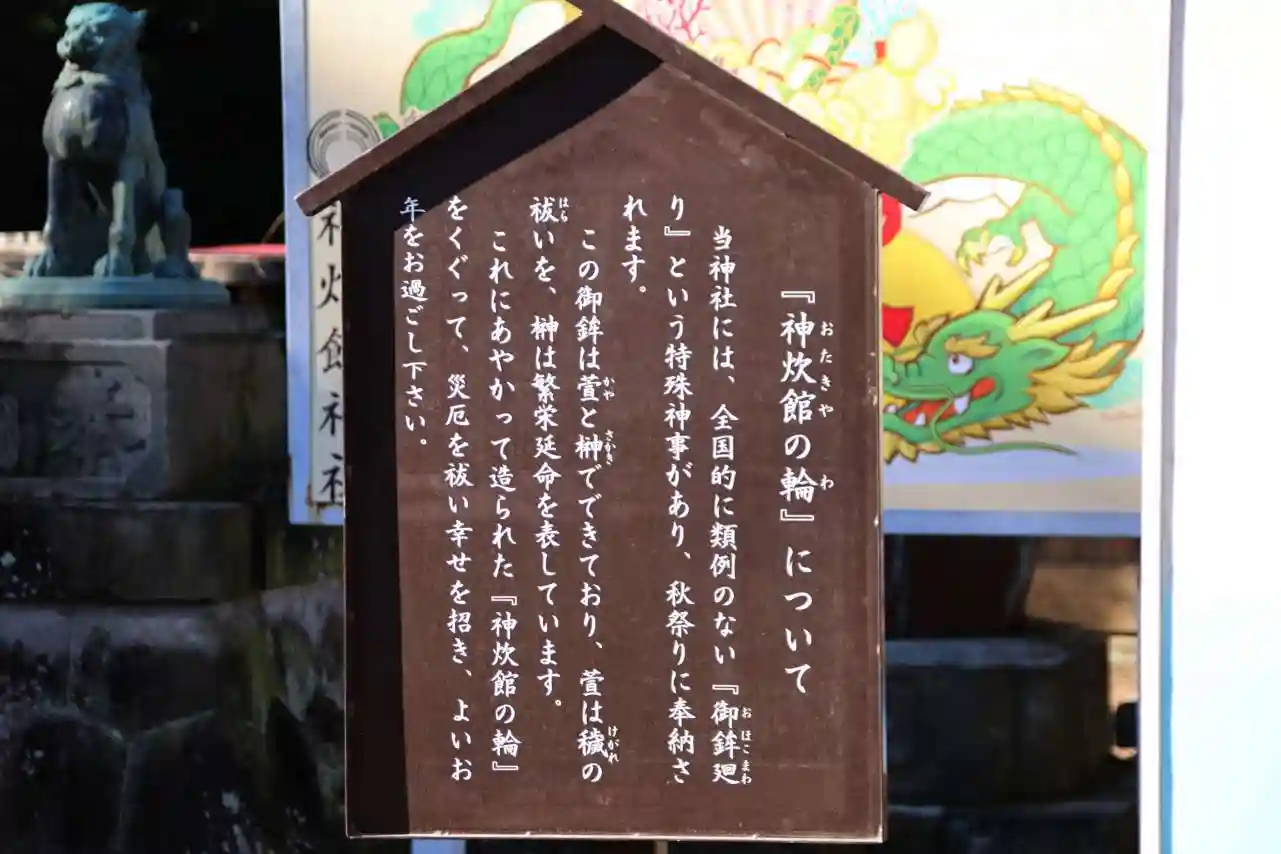 『神炊館の輪』について
おたきや わ
当神社には、全国的に類例のない『御鉾廻
おほこまわ
り』という特殊神事があり、秋祭りに奉納さ
れます。
この御鉾は萱と榊でできており、萱は穢の
かや さかき けがれ
祓いを、榊は繁栄延命を表しています。
はら
これにあやかって造られた『神炊館の輪』
をくぐって、災厄を祓い幸せを招き、よいお
年をお過ごし下さい。
神炊館神社